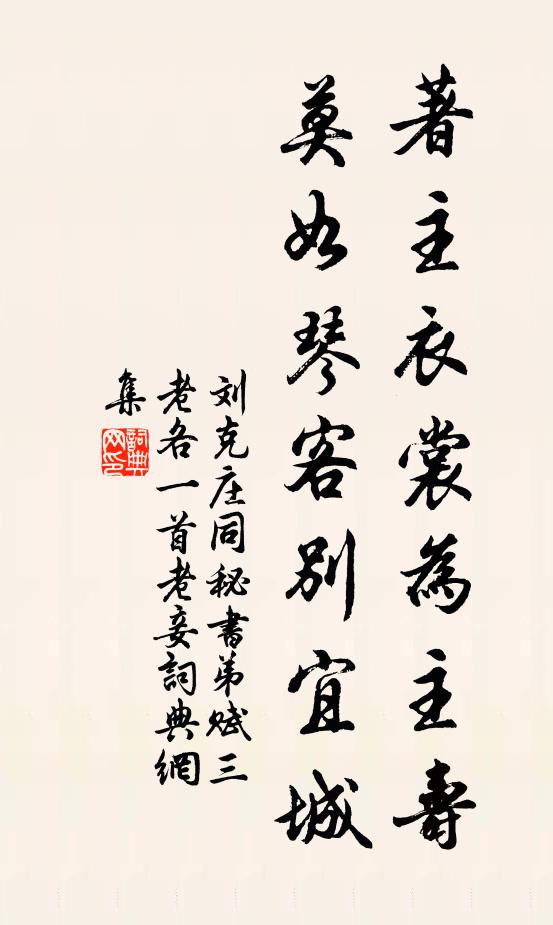 著主衣裳為主壽
莫如琴客別宜城
刘克庄同秘書弟赋三
老各一首老妾詞典網
集
詞典网印